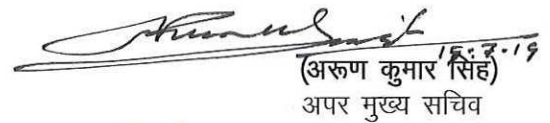 15.7.19
(अरूण कुमार सिंह)
अपर मुख्य सचिव